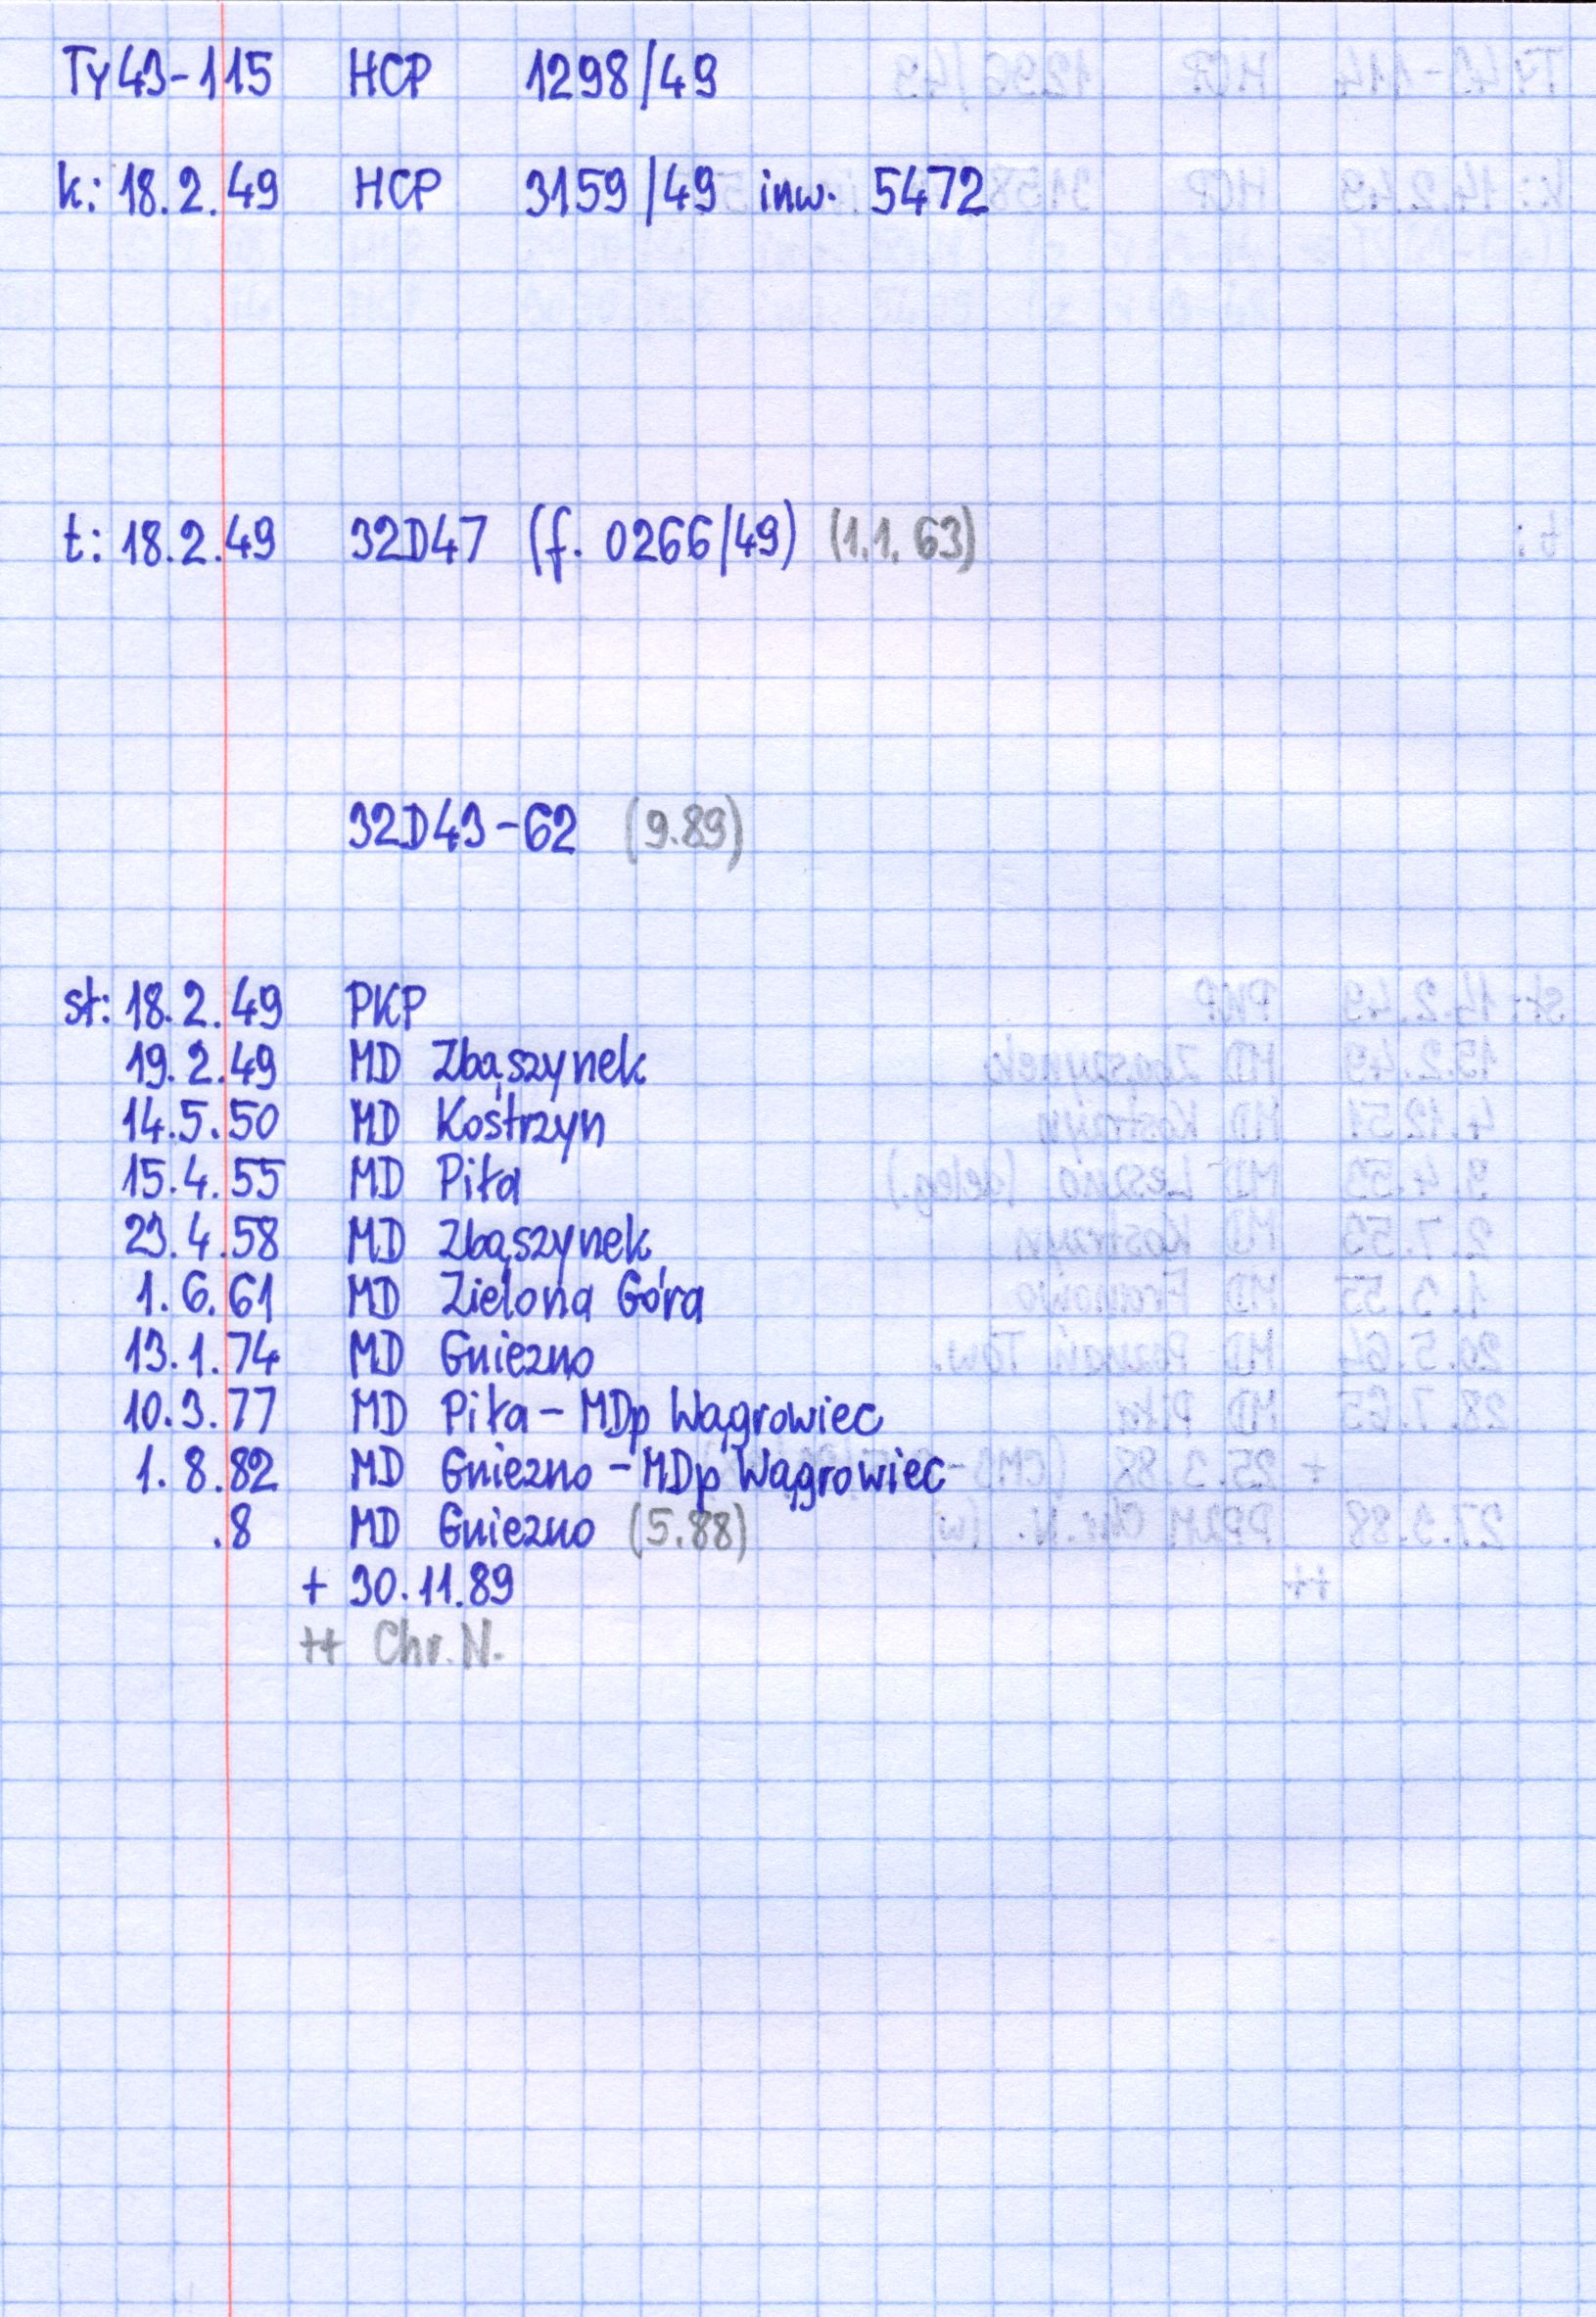 Ty43-115 HCP 1298/49
k: 18.2.49 HCP 3159/49 inw. 5472
t: 18.2.49 32D47 (f. 0266/49) (1.1.63)
32D43-62 (9.89)
st: 18.2.49 PKP
19.2.49 MD Zbąszynek
14.5.50 MD Kostrzyn
15.4.55 MD Piła
23.4.58 MD Zbąszynek
1.6.61 MD Zielona Góra
13.1.74 MD Gniezno
10.3.77 MD Piła - MDp Wągrowiec
1.8.82 MD Gniezno - MDp Wągrowiec
.8 MD Gniezno (5.88)
+ 30.11.89
++ Chr. N.